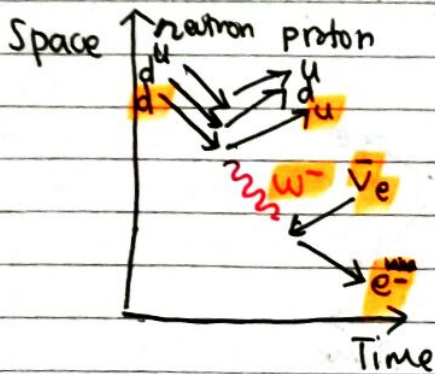 Space neutron proton
u u
d d
d u
W⁻ ν̄e
e⁻
Time